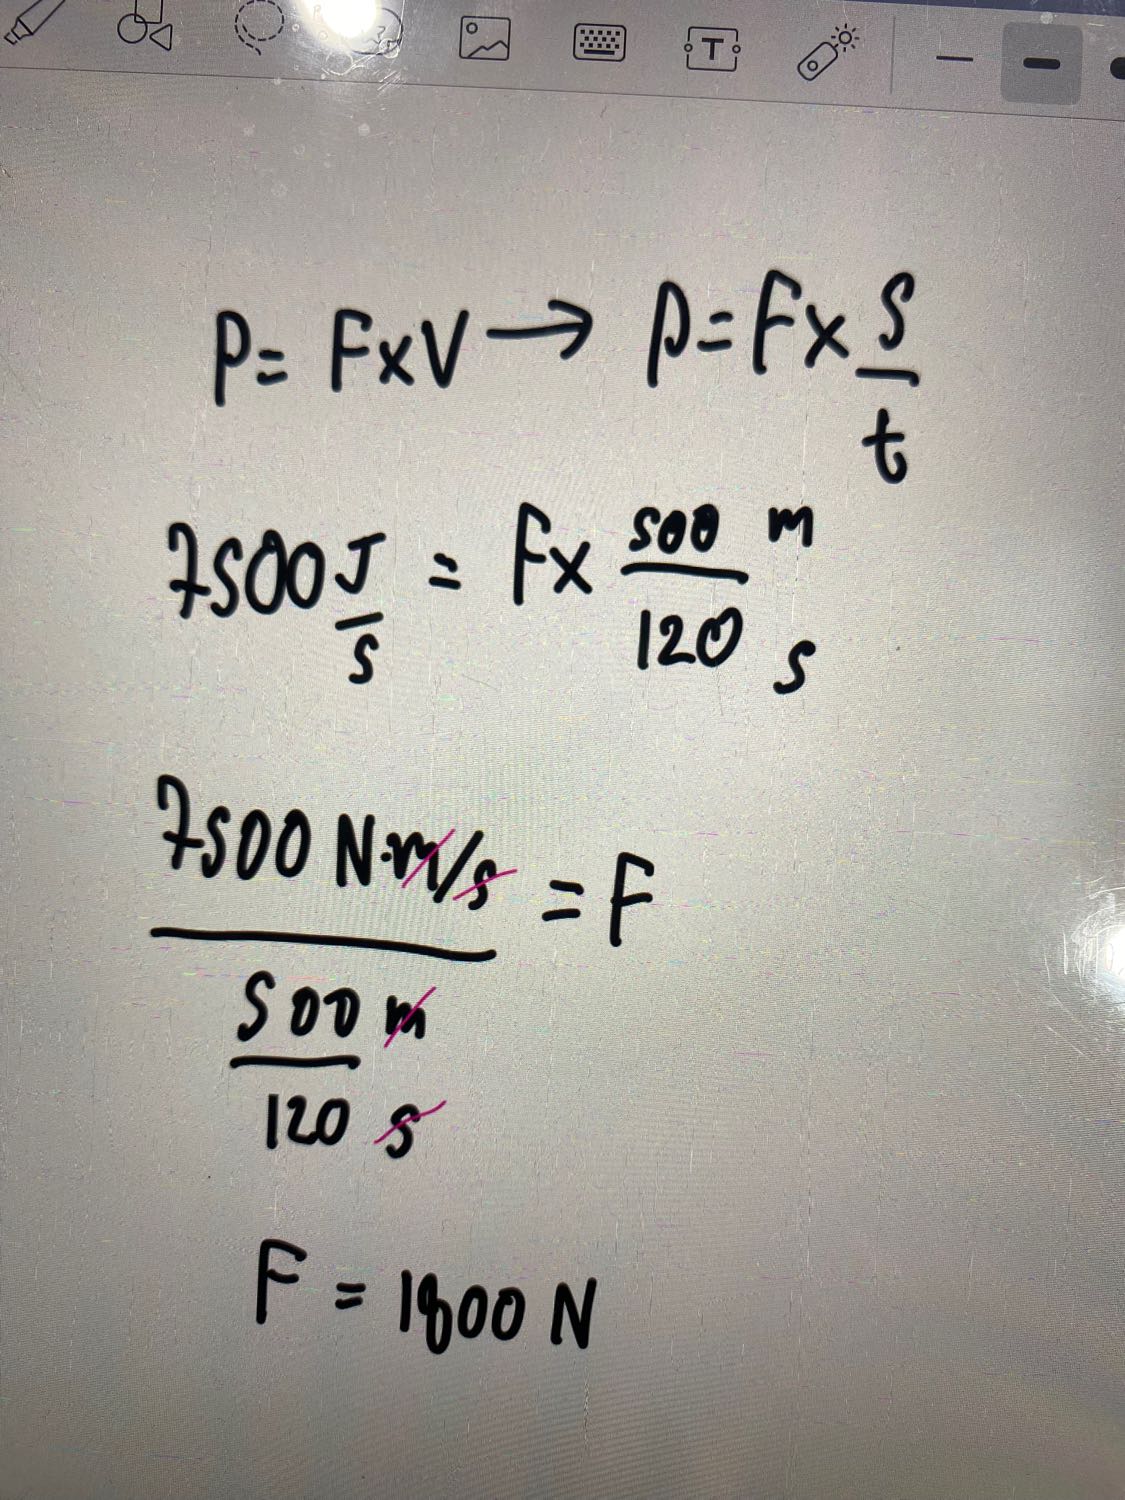 P= F×V → P=F×S/t
7500 J/s = F× 500/120 m/s
7500 N·m/s / 500/120 m/s = F
F = 1800 N